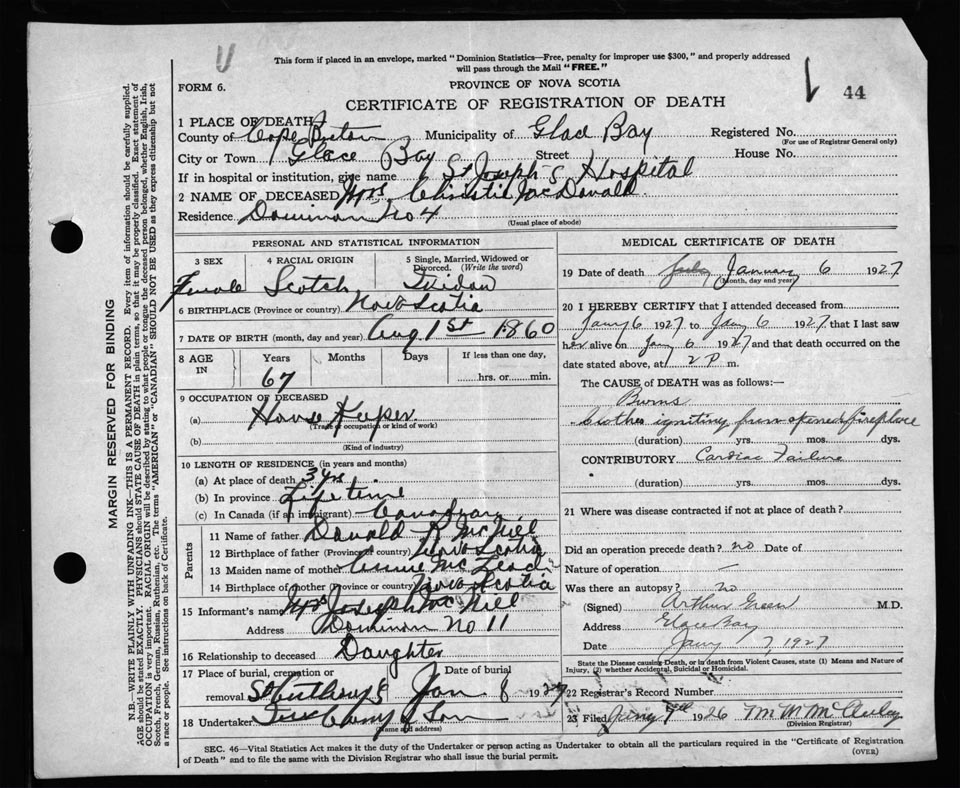 This form if placed in an envelope, marked "Dominion Statistics—Free, penalty for improper use $300," and properly addressed
will pass through the Mail "FREE."
FORM 6.
PROVINCE OF NOVA SCOTIA
44
CERTIFICATE OF REGISTRATION OF DEATH
1 PLACE OF DEATH
County of Cape Breton Municipality of Glace Bay Registered No.
(For use of Registrar General only)
City or Town Glace Bay Street House No.
If in hospital or institution, give name St Joseph's Hospital
2 NAME OF DECEASED Mrs Christie MacDonald
Residence Dominion No 4
(Usual place of abode)
PERSONAL AND STATISTICAL INFORMATION
3 SEX 4 RACIAL ORIGIN 5 Single, Married, Widowed or
Divorced. (Write the word)
Female Scotch
6 BIRTHPLACE (Province or country) Nova Scotia
7 DATE OF BIRTH (month, day and year) Aug 1st 1860
8 AGE IN Years Months Days If less than one day,
67 hrs. or min.
9 OCCUPATION OF DECEASED
(a) House Keeper
(Trade or occupation or kind of work)
(b)
(Kind of industry)
10 LENGTH OF RESIDENCE (in years and months)
(a) At place of death 3 yrs
(b) In province Life time
(c) In Canada (if an immigrant) Canadian
Parents
11 Name of father Donald R McNeil
12 Birthplace of father (Province or country) Nova Scotia
13 Maiden name of mother Annie McLeod
14 Birthplace of mother (Province or country) Nova Scotia
15 Informant's name Mrs Joseph McNeil
Address Dominion No 11
16 Relationship to deceased Daughter
17 Place of burial, cremation or Date of burial
removal St Anthony's Jan 8 1927
18 Undertaker & Son
(Name and address)
MEDICAL CERTIFICATE OF DEATH
19 Date of death January 6 1927
(Month, day and year)
20 I HEREBY CERTIFY that I attended deceased from
Jany 6 1927 to Jany 6 1927 that I last saw
her alive on Jany 6 1927 and that death occurred on the
date stated above, at 2 P m.
The CAUSE of DEATH was as follows:—
Burns
Clothes igniting from opened fireplace
(duration) yrs. mos. dys.
CONTRIBUTORY Cardiac Failure
(duration) yrs. mos. dys.
21 Where was disease contracted if not at place of death?
Did an operation precede death? no Date of
Nature of operation —
Was there an autopsy? no
(Signed) Arthur Green M.D.
Address Glace Bay
Date Jany 7, 1927
State the Disease causing Death, or in death from Violent Causes, state (1) Means and Nature of
Injury, (2) whether Accidental, Suicidal or Homicidal.
22 Registrar's Record Number
23 Filed Jany 7th 1926
(Division Registrar)
SEC. 46—Vital Statistics Act makes it the duty of the Undertaker or person acting as Undertaker to obtain all the particulars required in the "Certificate of Registration
of Death" and to file the same with the Division Registrar who shall issue the burial permit.
(OVER)
MARGIN RESERVED FOR BINDING
N.B.—WRITE PLAINLY WITH UNFADING INK—THIS IS A PERMANENT RECORD. Every item of information should be carefully supplied.
AGE should be stated EXACTLY. PHYSICIANS should STATE CAUSE OF DEATH in plain terms, so that it may be properly classified. Exact statement of
OCCUPATION is very important. RACIAL ORIGIN will be described by stating to what people or tongue the deceased person belonged, whether English, Irish,
Scotch, French, German, Russian, Ruthenian, etc. The terms "AMERICAN" or "CANADIAN" SHOULD NOT BE USED as they express citizenship but not
a race or people. See instructions on back of Certificate.